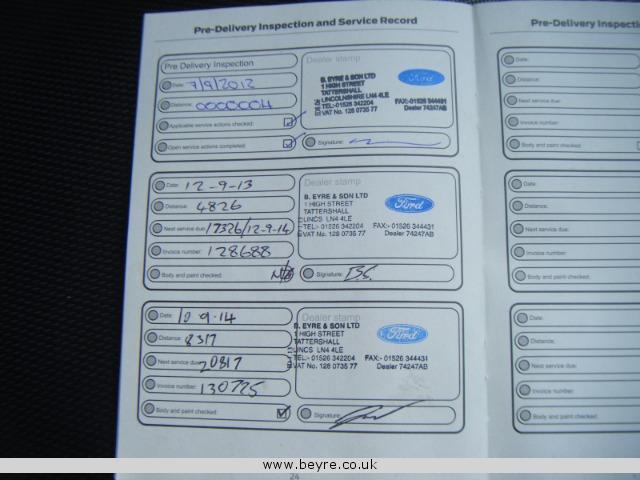 Pre-Delivery Inspection and Service Record
Pre Delivery Inspection
Date: 7/9/2012
Distance: 0000004
Applicable service actions checked:
Open service actions completed:
Dealer stamp
B. EYRE & SON LTD
1 HIGH STREET
TATTERSHALL
LINCOLNSHIRE LN4 4LE
TEL:-01526 342204 FAX:-01526 344431
VAT No. 128 0735 77 Dealer 74247AB
Ford
Signature:
Date: 12-9-13
Distance: 4826
Next service due: 17326/12-9-14
Invoice number: 128688
Body and paint checked: N/A
Dealer stamp
B. EYRE & SON LTD
1 HIGH STREET
TATTERSHALL
LINCS LN4 4LE
TEL:- 01526 342204 FAX:- 01526 344431
VAT No. 128 0735 77 Dealer 74247AB
Ford
Signature:
Date: 12-9-14
Distance: 8317
Next service due: 20817
Invoice number: 130725
Body and paint checked:
Dealer stamp
B. EYRE & SON LTD
1 HIGH STREET
TATTERSHALL
LINCS LN4 4LE
TEL:- 01526 342204 FAX:- 01526 344431
VAT No. 128 0735 77 Dealer 74247AB
Ford
Signature:
24
Pre-Delivery Inspecti
Date:
Distance:
Next service due:
Invoice number:
Body and paint
Date:
Distance:
Next service due:
Invoice number:
Body and paint checked:
Date:
Distance:
Next service due:
Invoice number:
Body and paint checked:
www.beyre.co.uk